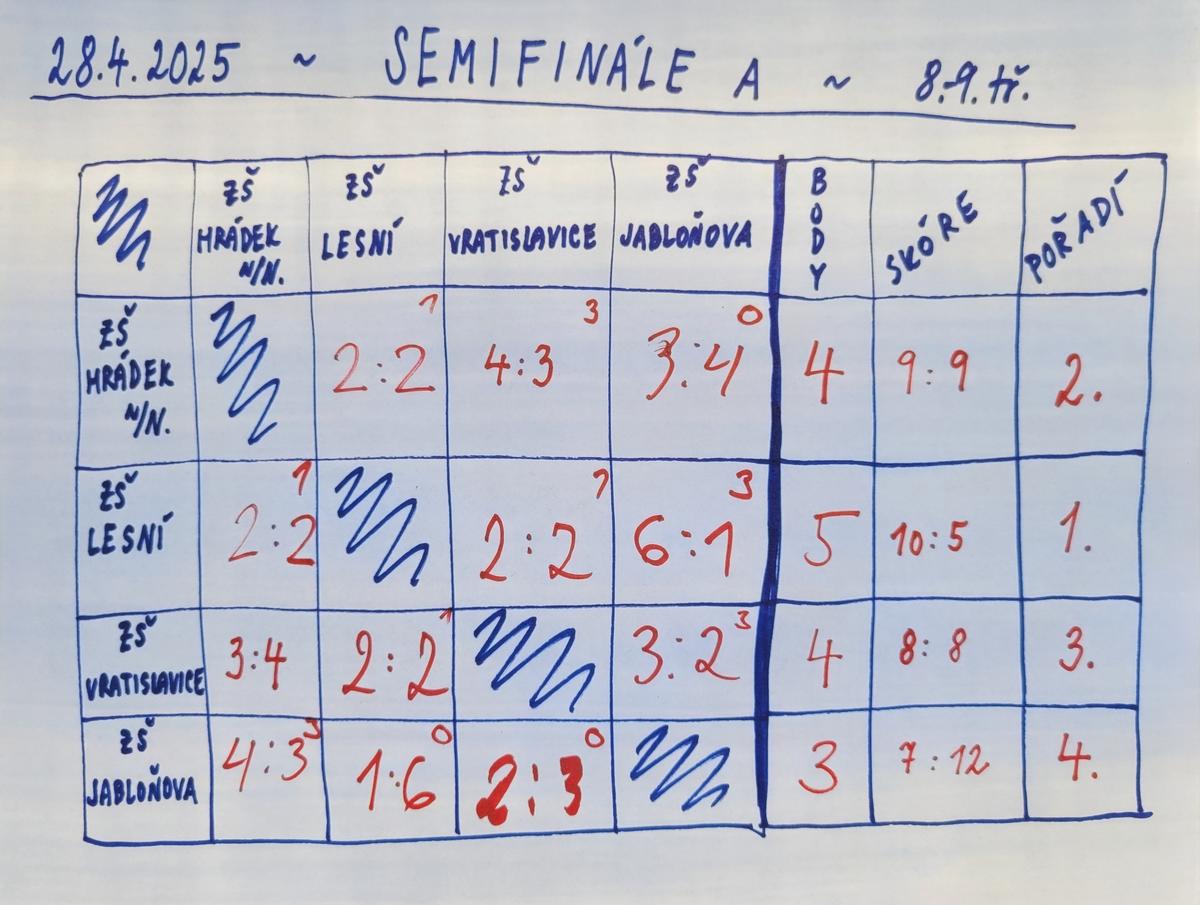 28.4.2025 ~ SEMIFINÁLE A ~ 8.-9. tř.
ZŠ HRÁDEK N/N. ZŠ LESNÍ ZŠ VRATISLAVICE ZŠ JABLOŇOVA BODY SKÓRE POŘADÍ
ZŠ HRÁDEK N/N. 2:2 1 4:3 3 3:4 0 4 9:9 2.
ZŠ LESNÍ 2:2 1 2:2 1 6:1 3 5 10:5 1.
ZŠ VRATISLAVICE 3:4 2:2 1 3:2 3 4 8:8 3.
ZŠ JABLOŇOVA 4:3 3 1:6 0 2:3 0 3 7:12 4.